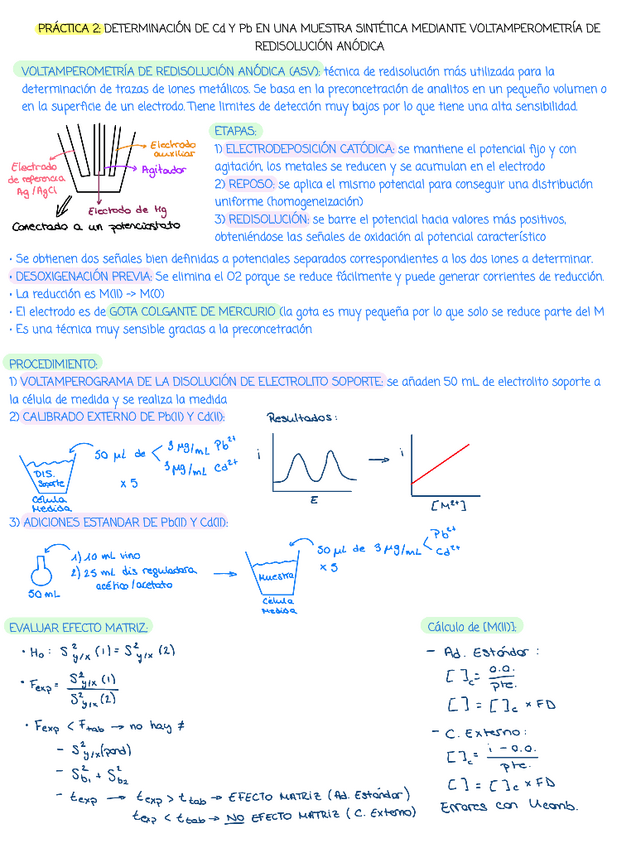 PRÁCTICA 2: DETERMINACIÓN DE Cd Y Pb EN UNA MUESTRA SINTÉTICA MEDIANTE VOLTAMPEROMETRÍA DE
REDISOLUCIÓN ANÓDICA
VOLTAMPEROMETRÍA DE REDISOLUCIÓN ANÓDICA (ASV): técnica de redisolución más utilizada para la
determinación de trazas de iones metálicos. Se basa en la preconcetración de analitos en un pequeño volumen o
en la superficie de un electrodo. Tiene limites de detección muy bajos por lo que tiene una alta sensibilidad.
Electrodo
de referencia
Ag/AgCl
Electrodo
auxiliar
Agitador
Electrodo de Hg
Conectado a un potenciostato
ETAPAS:
1) ELECTRODEPOSICIÓN CATÓDICA: se mantiene el potencial fijo y con
agitación, los metales se reducen y se acumulan en el electrodo
2) REPOSO: se aplica el mismo potencial para conseguir una distribución
uniforme (homogeneización)
3) REDISOLUCIÓN: se barre el potencial hacia valores más positivos,
obteniéndose las señales de oxidación al potencial característico
• Se obtienen dos señales bien definidas a potenciales separados correspondientes a los dos iones a determinar.
• DESOXIGENACIÓN PREVIA: Se elimina el O2 porque se reduce fácilmente y puede generar corrientes de reducción.
• La reducción es M(II) -> M(0)
• El electrodo es de GOTA COLGANTE DE MERCURIO (la gota es muy pequeña por lo que solo se reduce parte del M
• Es una técnica muy sensible gracias a la preconcetración
PROCEDIMIENTO:
1) VOLTAMPEROGRAMA DE LA DISOLUCIÓN DE ELECTROLITO SOPORTE: se añaden 50 mL de electrolito soporte a
la célula de medida y se realiza la medida
2) CALIBRADO EXTERNO DE Pb(II) Y Cd(II):
DIS.
Soporte
Célula
Medida
50 μL de
3 μg/mL Pb²⁺
3 μg/mL Cd²⁺
x 5
Resultados:
i
E
→
i
[M²⁺]
3) ADICIONES ESTANDAR DE Pb(II) Y Cd(II):
50 mL
1) 10 mL vino
2) 25 mL dis reguladora
acético/acetato
→
Muestra
Célula
Medida
50 μL de 3 μg/mL
Pb²⁺
Cd²⁺
x 5
EVALUAR EFECTO MATRIZ:
• H₀: S²y/x (1) = S²y/x (2)
• Fexp = S²y/x (1) / S²y/x (2)
• Fexp < Ftab → no hay ≠
- S²y/x (pond)
- S²b1 + S²b2
- texp → texp > ttab → EFECTO MATRIZ (Ad. Estándar)
texp < ttab → NO EFECTO MATRIZ (C. Externo)
Cálculo de [M(II)]:
- Ad. Estándar:
[ ]c = o.o. / pte.
[ ] = [ ]c × FD
- C. Externo:
[ ]c = i - o.o. / pte.
[ ] = [ ]c × FD
Errores con Ucomb.